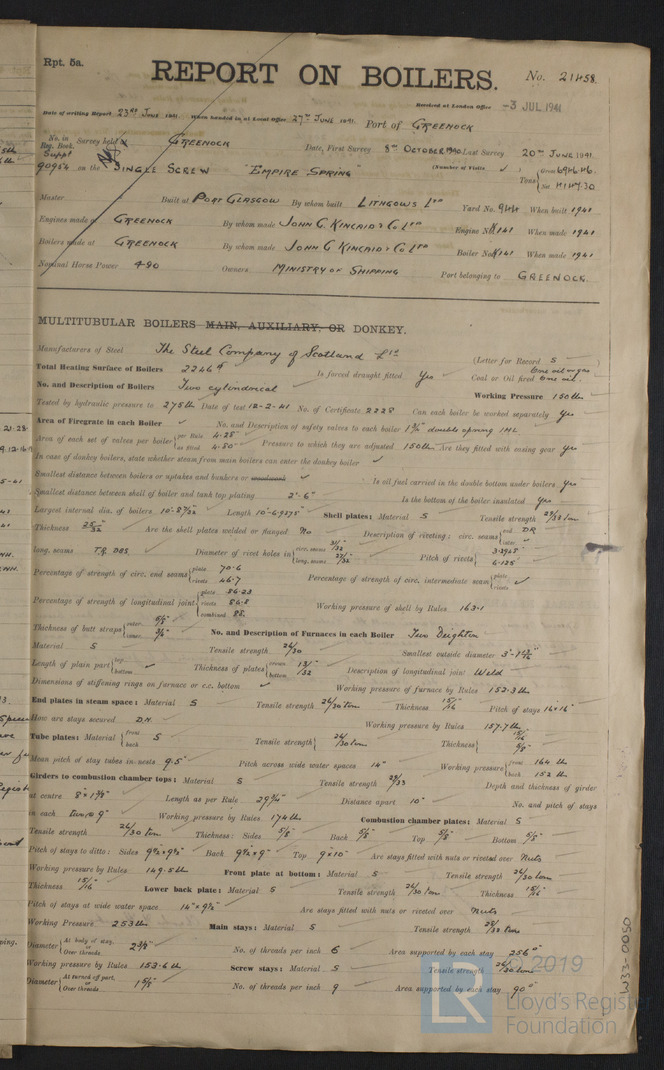 Rpt. 5a.
REPORT ON BOILERS.
No. 21458.
Received at London Office -3 JUL 1941
Date of writing Report 23rd June 1941. When handed in at Local Office 27th June 1941. Port of Greenock
No. in Reg. Book. Survey held at Greenock Date, First Survey 8th October 1940 Last Survey 20th June 1941
Suppt
90954 on the Single Screw "Empire Spring" (Number of Visits ) Tons Gross 6946.46 Net 4147.30
Master Built at Port Glasgow By whom built Lithgows Ltd Yard No. 944 When built 1941
Engines made at Greenock By whom made John G. Kincaid & Co Ltd Engine No. K141 When made 1941
Boilers made at Greenock By whom made John G. Kincaid & Co Ltd Boiler No. K141 When made 1941
Nominal Horse Power 490 Owners Ministry of Shipping Port belonging to Greenock.
MULTITUBULAR BOILERS MAIN, AUXILIARY, OR DONKEY.
Manufacturers of Steel The Steel Company of Scotland Ltd (Letter for Record S )
Total Heating Surface of Boilers 2246 Is forced draught fitted Yes Coal or Oil fired one oil.
No. and Description of Boilers Two cylindrical Working Pressure 150 lb
Tested by hydraulic pressure to 275 lb Date of test 12-2-41 No. of Certificate 2228 Can each boiler be worked separately Yes
Area of Firegrate in each Boiler No. and Description of safety valves to each boiler double spring
Area of each set of valves per boiler per Rule 4.25 as fitted 4.80 Pressure to which they are adjusted 150 lb Are they fitted with easing gear Yes
In case of donkey boilers, state whether steam from main boilers can enter the donkey boiler
Smallest distance between boilers or uptakes and bunkers or woodwork Is oil fuel carried in the double bottom under boilers Yes
Smallest distance between shell of boiler and tank top plating 2'-6" Is the bottom of the boiler insulated Yes
Largest internal dia. of boilers 10'-8 7/32 Length 10'-6.9375" Shell plates: Material S Tensile strength 29/33 ton
Thickness 25/32 Are the shell plates welded or flanged No Description of riveting: circ. seams end DR inter.
long. seams TR DBS Diameter of rivet holes in circ. seams long. seams Pitch of rivets 6.125"
Percentage of strength of circ. end seams plate 70.6 rivets 46.7 Percentage of strength of circ. intermediate seam plate rivets
Percentage of strength of longitudinal joint plate 86.23 rivets 86.8 combined 88. Working pressure of shell by Rules 163.1
Thickness of butt straps outer 5/8" inner 3/4" No. and Description of Furnaces in each Boiler Two Deighton
Material S Tensile strength 26/30 Smallest outside diameter
Length of plain part top bottom Thickness of plates crown bottom 13/32 Description of longitudinal joint Weld
Dimensions of stiffening rings on furnace or c.c. bottom Working pressure of furnace by Rules 152.3 lb
End plates in steam space: Material S Tensile strength 26/30 ton Thickness 15/16 Pitch of stays 16x16"
How are stays secured D.N. Working pressure by Rules 157.7 lb
Tube plates: Material front back S Tensile strength 26/30 ton Thickness 15/16 5/8"
Mean pitch of stay tubes in nests 9.5" Pitch across wide water spaces 14" Working pressure front 164 lb back 152 lb
Girders to combustion chamber tops: Material S Tensile strength 29/33 Depth and thickness of girder
at centre Length as per Rule 29 3/4" Distance apart 10" No. and pitch of stays
in each two @ 9" Working pressure by Rules 174 lb Combustion chamber plates: Material S
Tensile strength 26/30 ton Thickness: Sides 5/8" Back 5/8" Top 5/8" Bottom 5/8"
Pitch of stays to ditto: Sides 9 1/2 x 9 1/2 Back 9 1/2 x 9" Top 9"x10" Are stays fitted with nuts or riveted over Nuts
Working pressure by Rules 149.5 lb Front plate at bottom: Material S Tensile strength 26/30 ton
Thickness 15/16 Lower back plate: Material S Tensile strength 26/30 ton Thickness 15/16"
Pitch of stays at wide water space 14"x9 1/2" Are stays fitted with nuts or riveted over Nuts
Working Pressure 253 lb Main stays: Material S Tensile strength 28/32 ton
Diameter At body of stay, or Over threads. 2 3/4" No. of threads per inch 6 Area supported by each stay 256
Working pressure by Rules 153.6 lb Screw stays: Material S Tensile strength 26/30 ton
Diameter At turned off part, or Over threads. 1 5/8" No. of threads per inch 9 Area supported by each stay 90
W33-0050
© 2019
LR
Lloyd's Register
Foundation